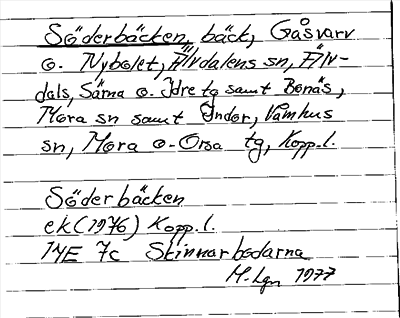 Söderbäcken, bäck, Gåsvarv
o. Nybolet, Älvdalens sn, Älv-
dals, Särna o. Idre tg samt Bonäs,
Mora sn samt Indor, Våmhus
sn, Mora o. Orsa tg, Kopp.l.
Söderbäcken
ek (1976) Kopp.l.
14E 7c Skinnarbodarna
M.Lgn 1977